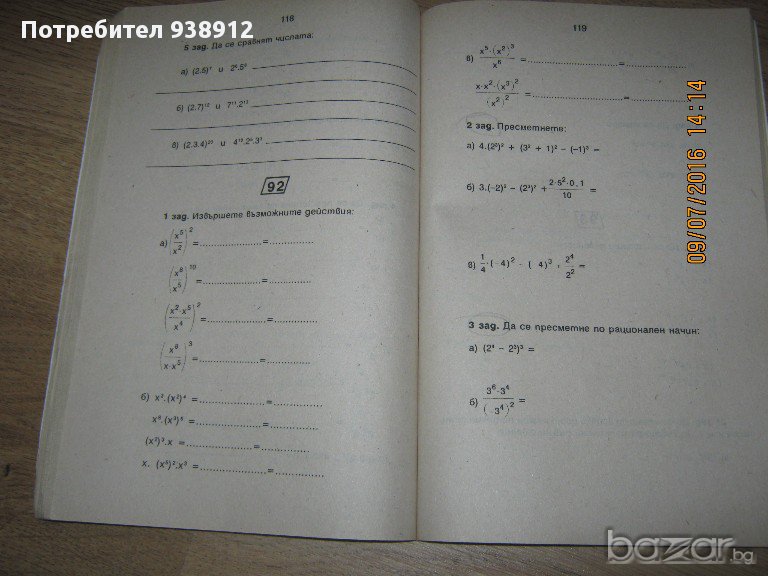 Потребител 938912
118
5 зад. Да се сравнят числата:
а) (2.5)⁷ и
б) (2.7)¹² и
в) (2.3.4)²⁰ и
92
1 зад. Извършете възможните действия:
а) (x⁵/x²)² = ............ = ............
(x⁸/x⁵)¹⁰ = ............ = ............
(x²·x⁵/x⁴)² = ............ = ............
(x⁸/x·x⁵)³ = ............ = ............
б) x².(x²)⁴ = ............ = ............
x⁶.(x³)⁵ = ............ = ............
(x³)³.x = ............ = ............
x. (x⁵)².x³ = ............ = ............
119
в) x⁵·(x²)³/x⁶ = ............ = ............
x·x²·(x³)²/(x²)² = ............ = ............
2 зад. Пресметнете:
а) 4.(2³)² + (3² + 1)² − (−1)³ =
б) 3.(−2)³ − (2³)² + 2·5²·0,1/10 =
в) 1/4·(−4)² − ( 4)³ · 2⁴/2² =
3 зад. Да се пресметне по рационален начин:
а)
б) 3⁶·3⁴/(−3⁴)² =
09/07/2016 14:14
bazar.bg